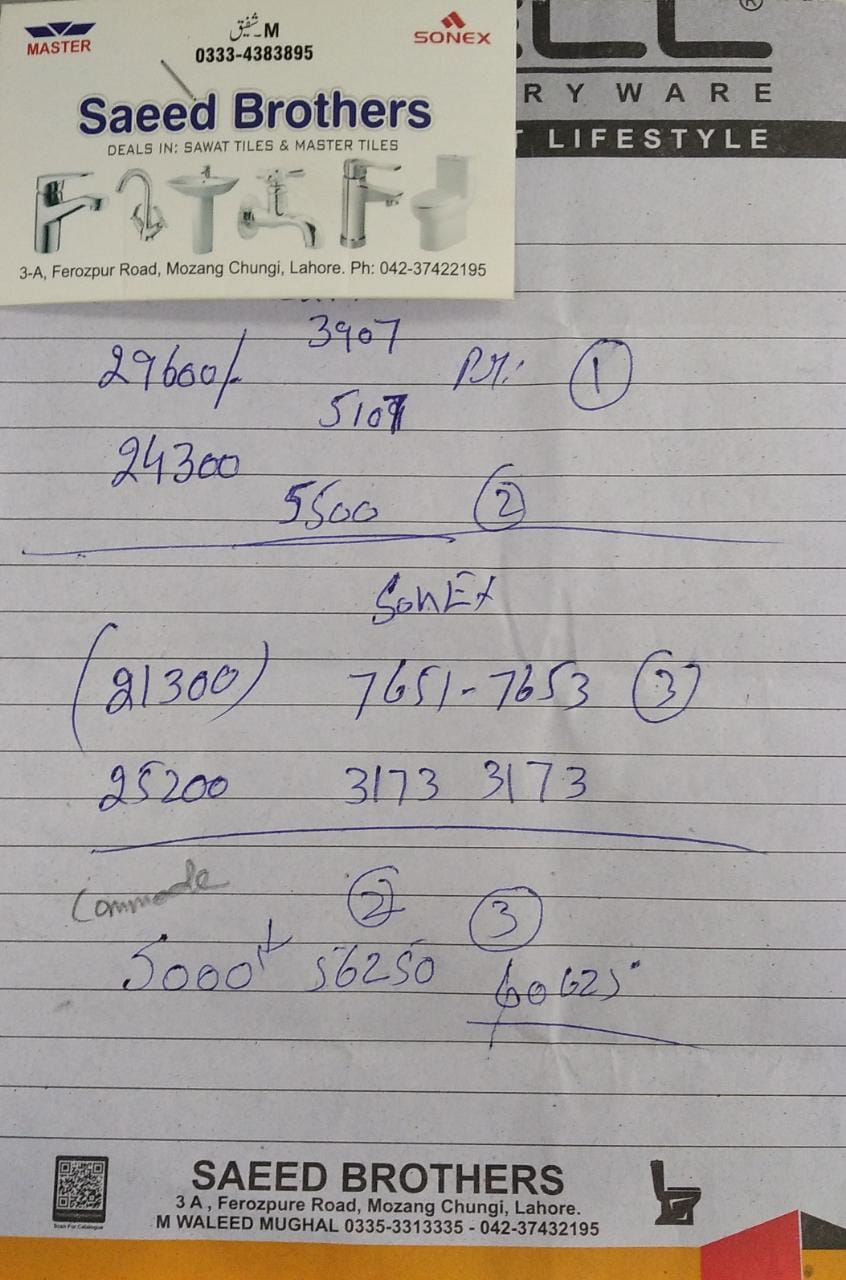 MASTER
شفیق M
0333-4383895
SONEX
®
Saeed Brothers
DEALS IN: SAWAT TILES & MASTER TILES
3-A, Ferozpur Road, Mozang Chungi, Lahore. Ph: 042-37422195
RY WARE
LIFESTYLE
3907
29600/-
1
5107
24300
5500 2
SonEx
(21300) 7651-7653 3
25200 3173 3173
Commode
2 3
5000 56250
Scan For Catalogue
SAEED BROTHERS
3 A , Ferozpure Road, Mozang Chungi, Lahore.
M WALEED MUGHAL 0335-3313335 - 042-37432195